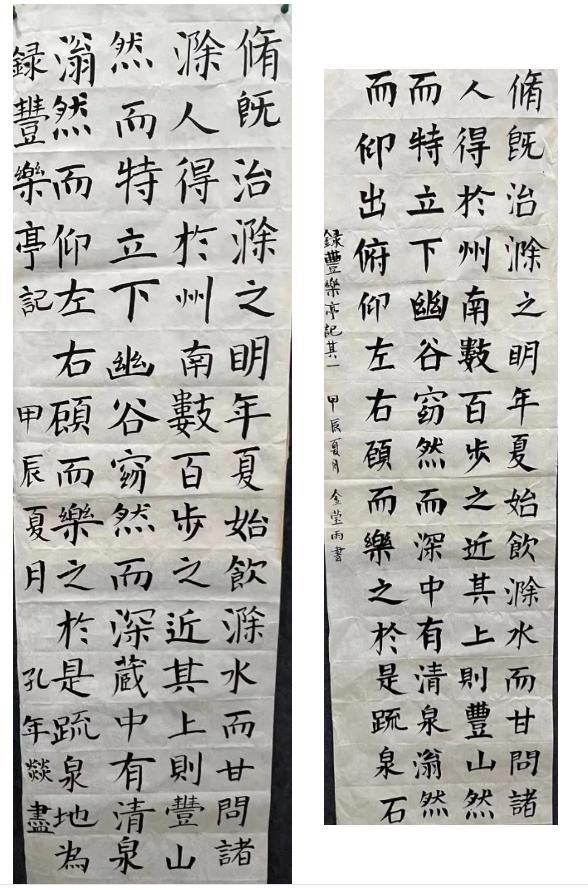 脩既治滁之眀年夏始飲滁水而甘問諸
滁人得於州南數百步之近其上則豐山
然而特立下幽谷窈然而深藏中有清泉
滃然而仰左右顧而樂之於是疏泉地為
録豐樂亭記 甲辰夏月 孔年燚盡
脩既治滁之眀年夏始飲滁水而甘問諸
人得於州南數百步之近其上則豐山然
而特立下幽谷窈然而深中有清泉滃然
而仰出俯仰左右顧而樂之於是疏泉石
録豐樂亭記其一 甲辰夏月 金瑩雨書